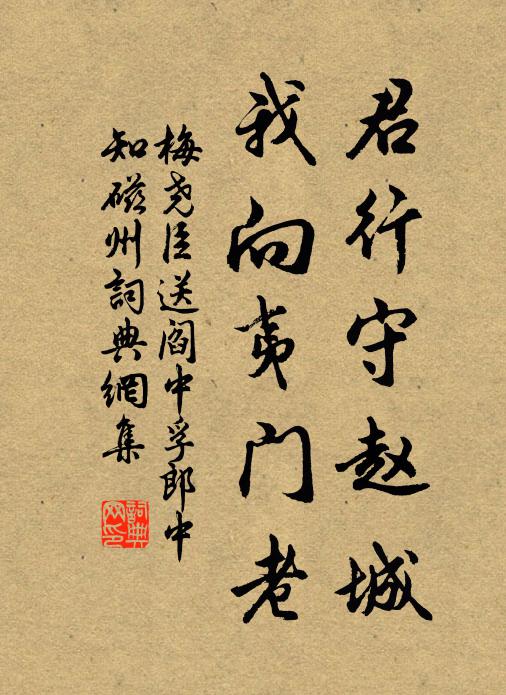 君行守赵城
我向夷门老
梅尧臣送阎中孚郎中
知磁州詞典網集
詞典
网印